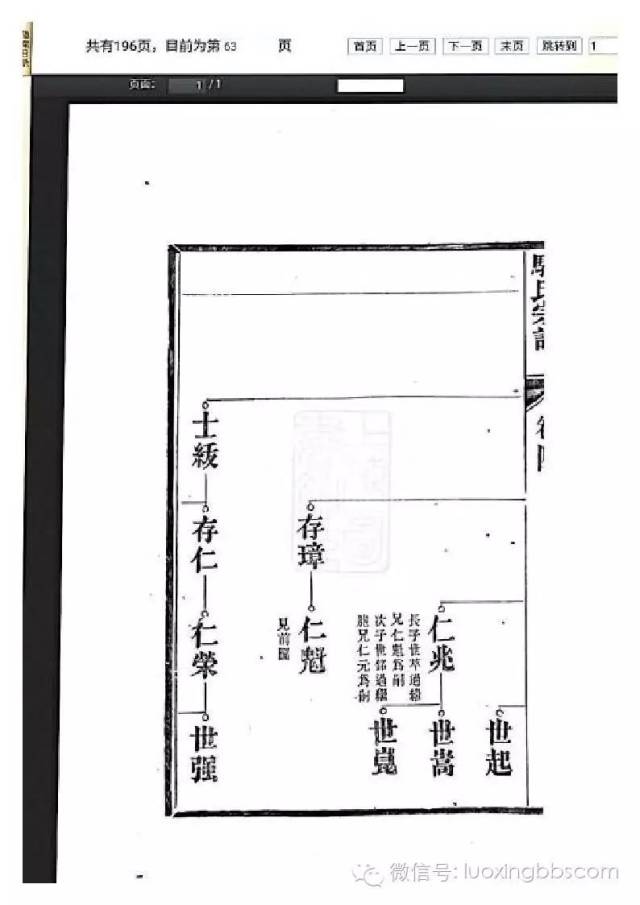 共有196页，目前为第 63 页 首页 上一页 下一页 末页 跳转到 1
页面： 1 / 1
駱氏宗譜
卷四
世起
仁兆
長子世苹過繼
兄仁魁為嗣
次子世銘過繼
胞兄仁元為嗣
世嵩
世崑
存璋
仁魁
見前圖
士級
存仁
仁榮
世强
微信号: luoxingbbscom